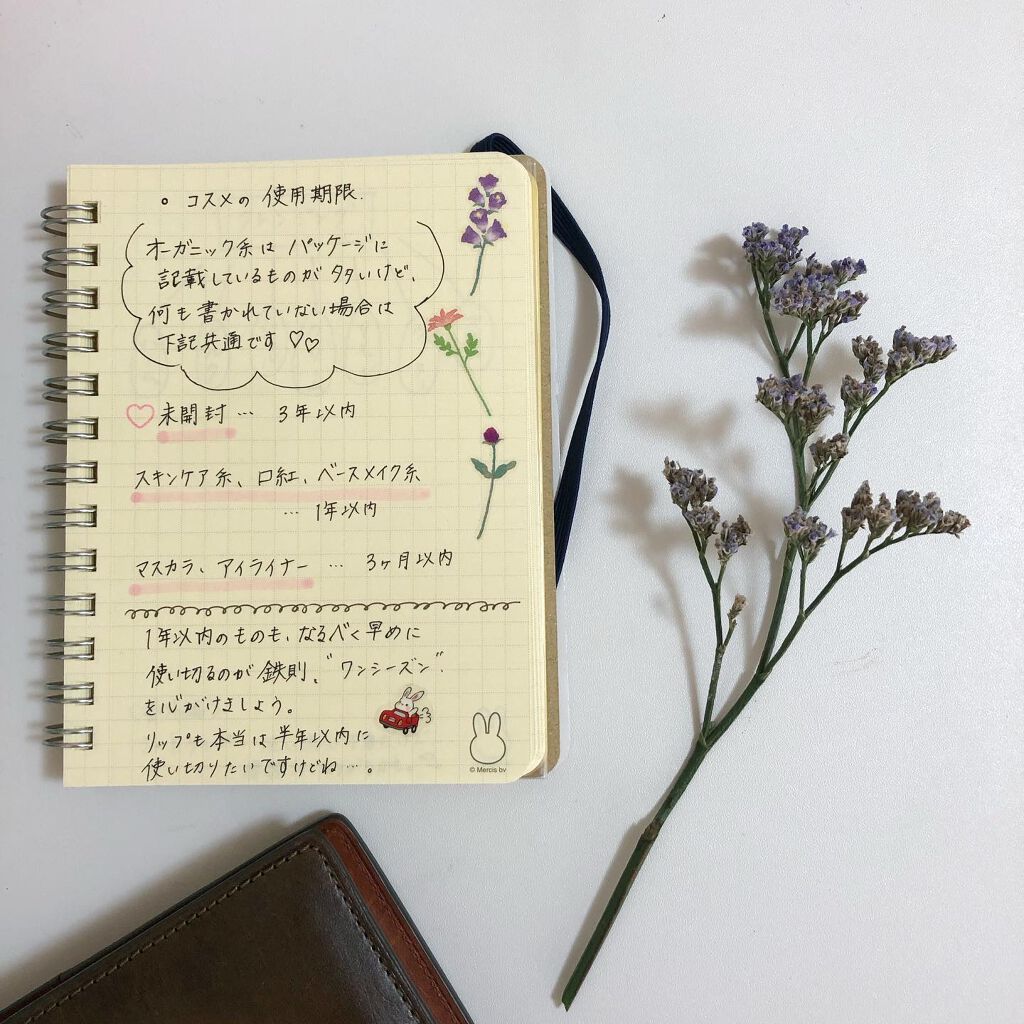 ○ コスメの使用期限.
オーガニック系は パッケージに
記載しているものが多いけど、
何も書かれていない場合は
下記共通です♡♡
♡未開封… 3年以内
スキンケア系、口紅、ベースメイク系
… 1年以内
マスカラ、アイライナー … 3ヶ月以内
1年以内のものも、なるべく早めに
使い切るのが鉄則、"ワンシーズン"
を心がけましょう。
リップも本当は半年以内に
使い切りたいですけどね…。
© Mercis bv